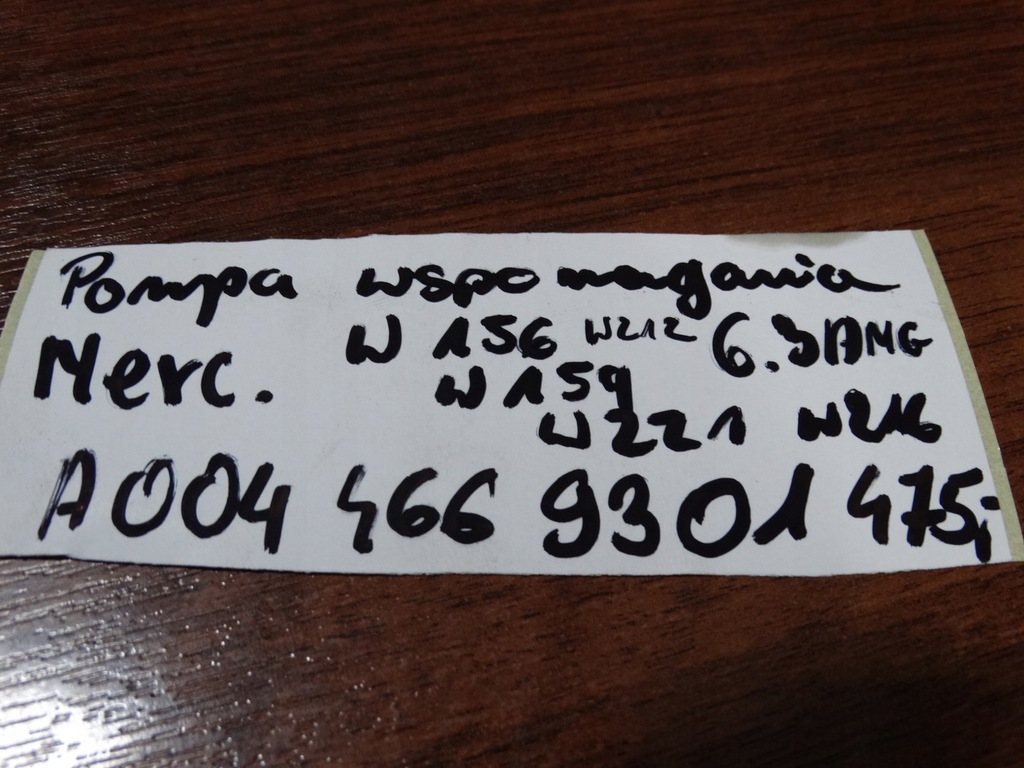 Pompa wspomagania
Merc. W 156 W212 6.3AMG
W 159
W 221 W216
A004 466 9301 475,-